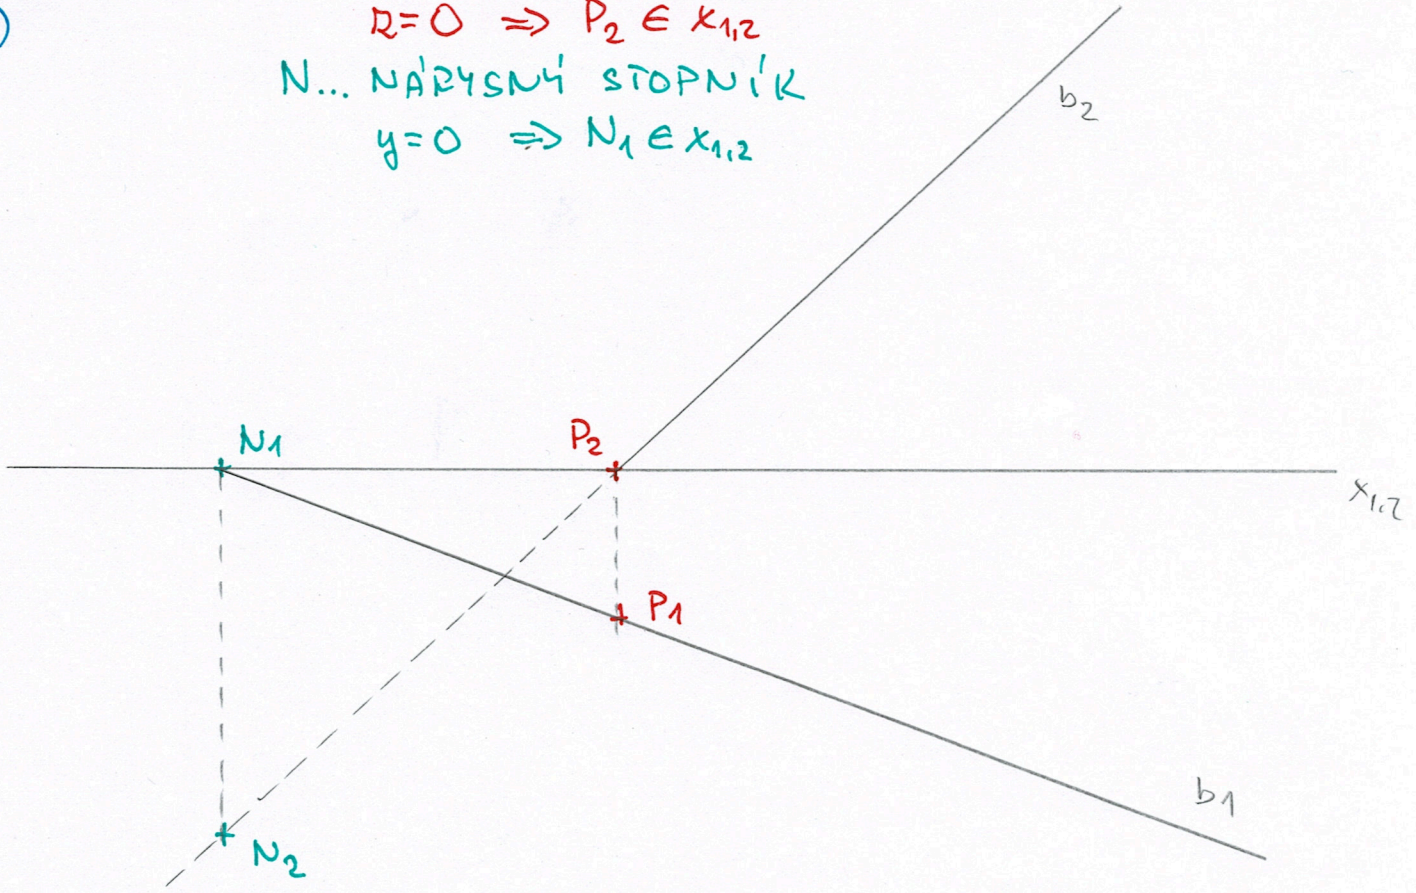 z=0 ⇒ P₂ ∈ x₁,₂
N... NÁRYSNÝ STOPNÍK
y=0 ⇒ N₁ ∈ x₁,₂
b₂
N₁
P₂
x₁,₂
P₁
b₁
N₂